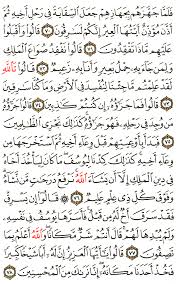 فَلَمَّا جَهَّزَهُم بِجَهَازِهِمْ جَعَلَ ٱلسِّقَايَةَ فِي رَحْلِ أَخِيهِ ثُمَّ
أَذَّنَ مُؤَذِّنٌ أَيَّتُهَا ٱلْعِيرُ إِنَّكُمْ لَسَٰرِقُونَ ٧٠ قَالُواْ وَأَقْبَلُواْ
عَلَيْهِم مَّاذَا تَفْقِدُونَ ٧١ قَالُواْ نَفْقِدُ صُوَاعَ ٱلْمَلِكِ
وَلِمَن جَآءَ بِهِۦ حِمْلُ بَعِيرٍ وَأَنَا۠ بِهِۦ زَعِيمٌ ٧٢ قَالُواْ تَٱللَّهِ
لَقَدْ عَلِمْتُم مَّا جِئْنَا لِنُفْسِدَ فِي ٱلْأَرْضِ وَمَا كُنَّا سَٰرِقِينَ
٧٣ قَالُواْ فَمَا جَزَٰٓؤُهُۥٓ إِن كُنتُمْ كَٰذِبِينَ ٧٤ قَالُواْ جَزَٰٓؤُهُۥ
مَن وُجِدَ فِي رَحْلِهِۦ فَهُوَ جَزَٰٓؤُهُۥ كَذَٰلِكَ نَجْزِي ٱلظَّٰلِمِينَ
٧٥ فَبَدَأَ بِأَوْعِيَتِهِمْ قَبْلَ وِعَآءِ أَخِيهِ ثُمَّ ٱسْتَخْرَجَهَا مِن
وِعَآءِ أَخِيهِ كَذَٰلِكَ كِدْنَا لِيُوسُفَ مَا كَانَ لِيَأْخُذَ أَخَاهُ
فِي دِينِ ٱلْمَلِكِ إِلَّآ أَن يَشَآءَ ٱللَّهُ نَرْفَعُ دَرَجَٰتٍ مَّن نَّشَآءُ
وَفَوْقَ كُلِّ ذِي عِلْمٍ عَلِيمٌ ٧٦ قَالُوٓاْ إِن يَسْرِقْ
فَقَدْ سَرَقَ أَخٌ لَّهُۥ مِن قَبْلُ فَأَسَرَّهَا يُوسُفُ فِي نَفْسِهِۦ
وَلَمْ يُبْدِهَا لَهُمْ قَالَ أَنتُمْ شَرٌّ مَّكَانًا وَٱللَّهُ أَعْلَمُ بِمَا
تَصِفُونَ ٧٧ قَالُواْ يَٰٓأَيُّهَا ٱلْعَزِيزُ إِنَّ لَهُۥٓ أَبًا شَيْخًا كَبِيرًا
فَخُذْ أَحَدَنَا مَكَانَهُۥٓ إِنَّا نَرَىٰكَ مِنَ ٱلْمُحْسِنِينَ ٧٨